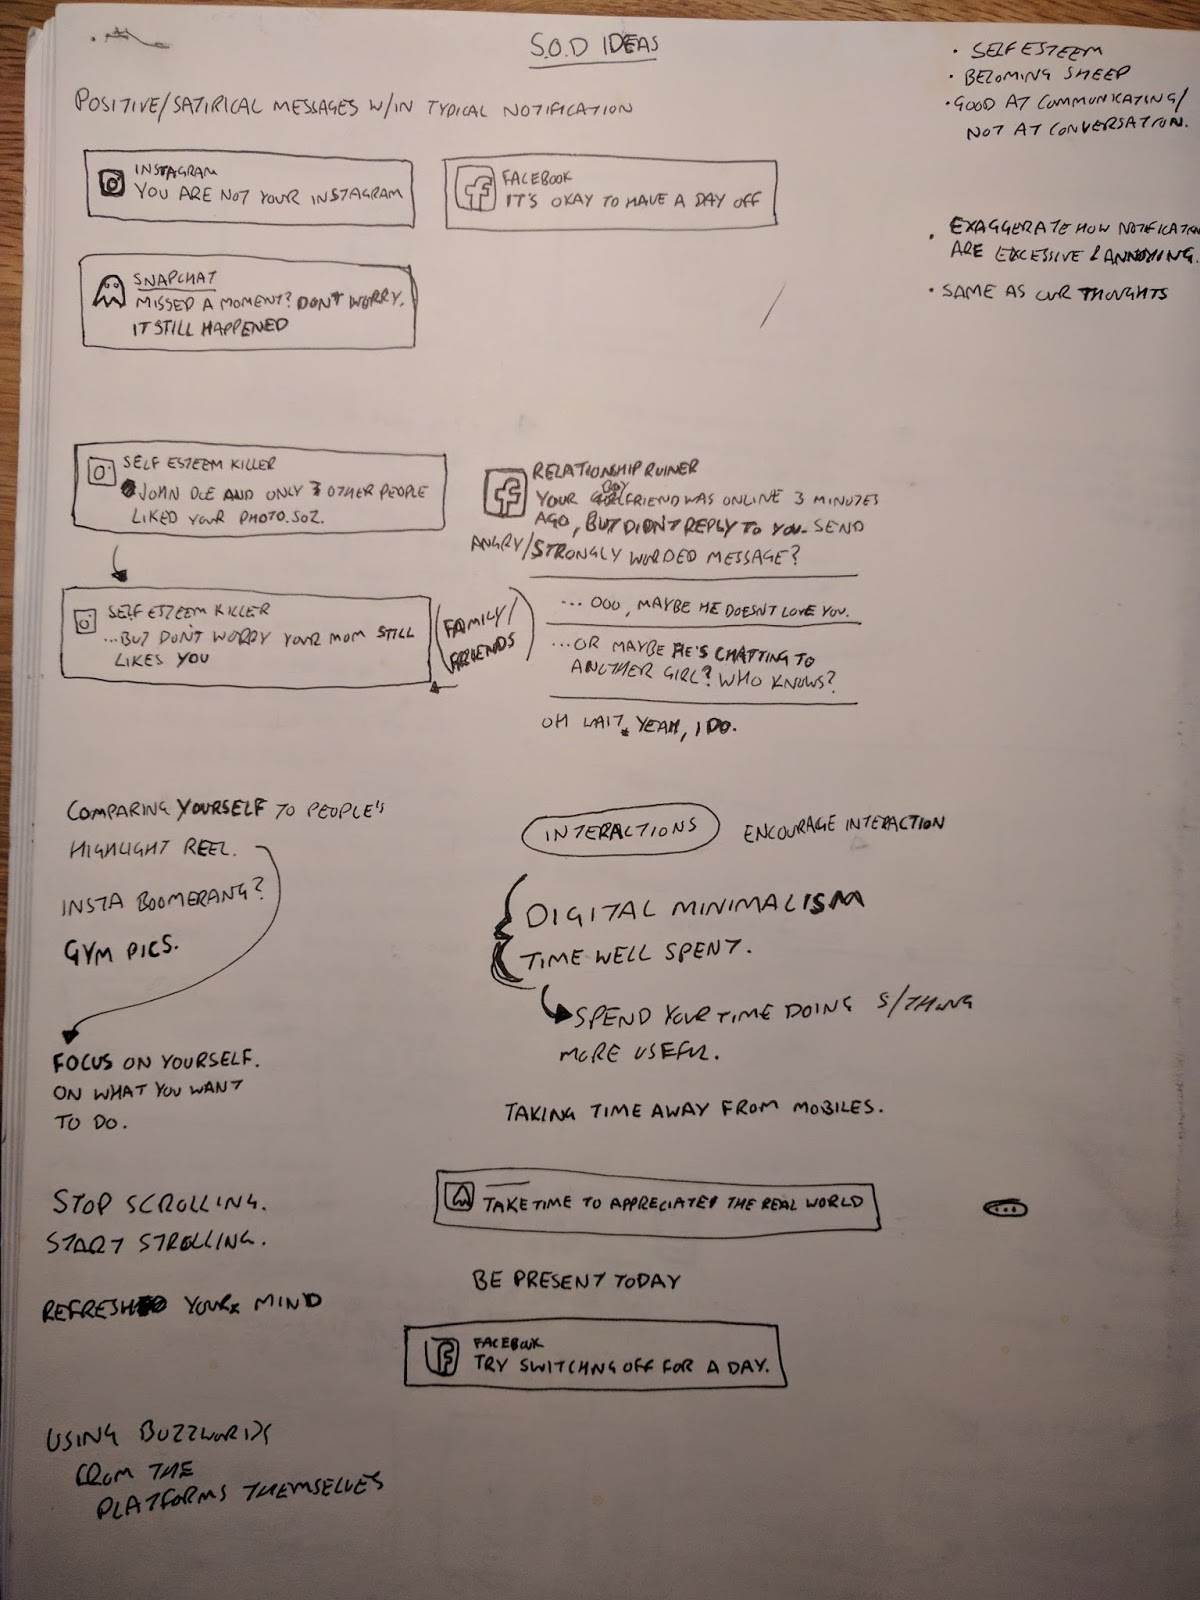 S.O.D IDEAS
POSITIVE/SATIRICAL MESSAGES W/IN TYPICAL NOTIFICATION
• SELF ESTEEM
• BECOMING SHEEP
• GOOD AT COMMUNICATING/
NOT AT CONVERSATION.
INSTAGRAM
YOU ARE NOT YOUR INSTAGRAM
FACEBOOK
IT'S OKAY TO HAVE A DAY OFF
• EXAGGERATE HOW NOTIFICATION
ARE EXCESSIVE & ANNOYING.
• SAME AS OUR THOUGHTS
SNAPCHAT
MISSED A MOMENT? DON'T WORRY.
IT STILL HAPPENED
SELF ESTEEM KILLER
JOHN DOE AND ONLY 3 OTHER PEOPLE
LIKED YOUR PHOTO. SOZ.
SELF ESTEEM KILLER
...BUT DON'T WORRY YOUR MOM STILL
LIKES YOU
(FAMILY/
FRIENDS)
RELATIONSHIP RUINER
BOY
YOUR GIRLFRIEND WAS ONLINE 3 MINUTES
AGO, BUT DIDN'T REPLY TO YOU. SEND
ANGRY/STRONGLY WORDED MESSAGE?
... OOO, MAYBE HE DOESN'T LOVE YOU.
...OR MAYBE HE'S CHATTING TO
ANOTHER GIRL? WHO KNOWS?
OH WAIT. YEAH, I DO.
COMPARING YOURSELF TO PEOPLE'S
HIGHLIGHT REEL.
INSTA BOOMERANG?
GYM PICS.
FOCUS ON YOURSELF.
ON WHAT YOU WANT
TO DO.
STOP SCROLLING.
START STROLLING.
REFRESH YOUR MIND
USING BUZZWORDS
FROM THE
PLATFORMS THEMSELVES
INTERACTIONS
ENCOURAGE INTERACTION
DIGITAL MINIMALISM
TIME WELL SPENT.
SPEND YOUR TIME DOING S/THING
MORE USEFUL.
TAKING TIME AWAY FROM MOBILES.
TAKE TIME TO APPRECIATE THE REAL WORLD
BE PRESENT TODAY
FACEBOOK
TRY SWITCHNG OFF FOR A DAY.